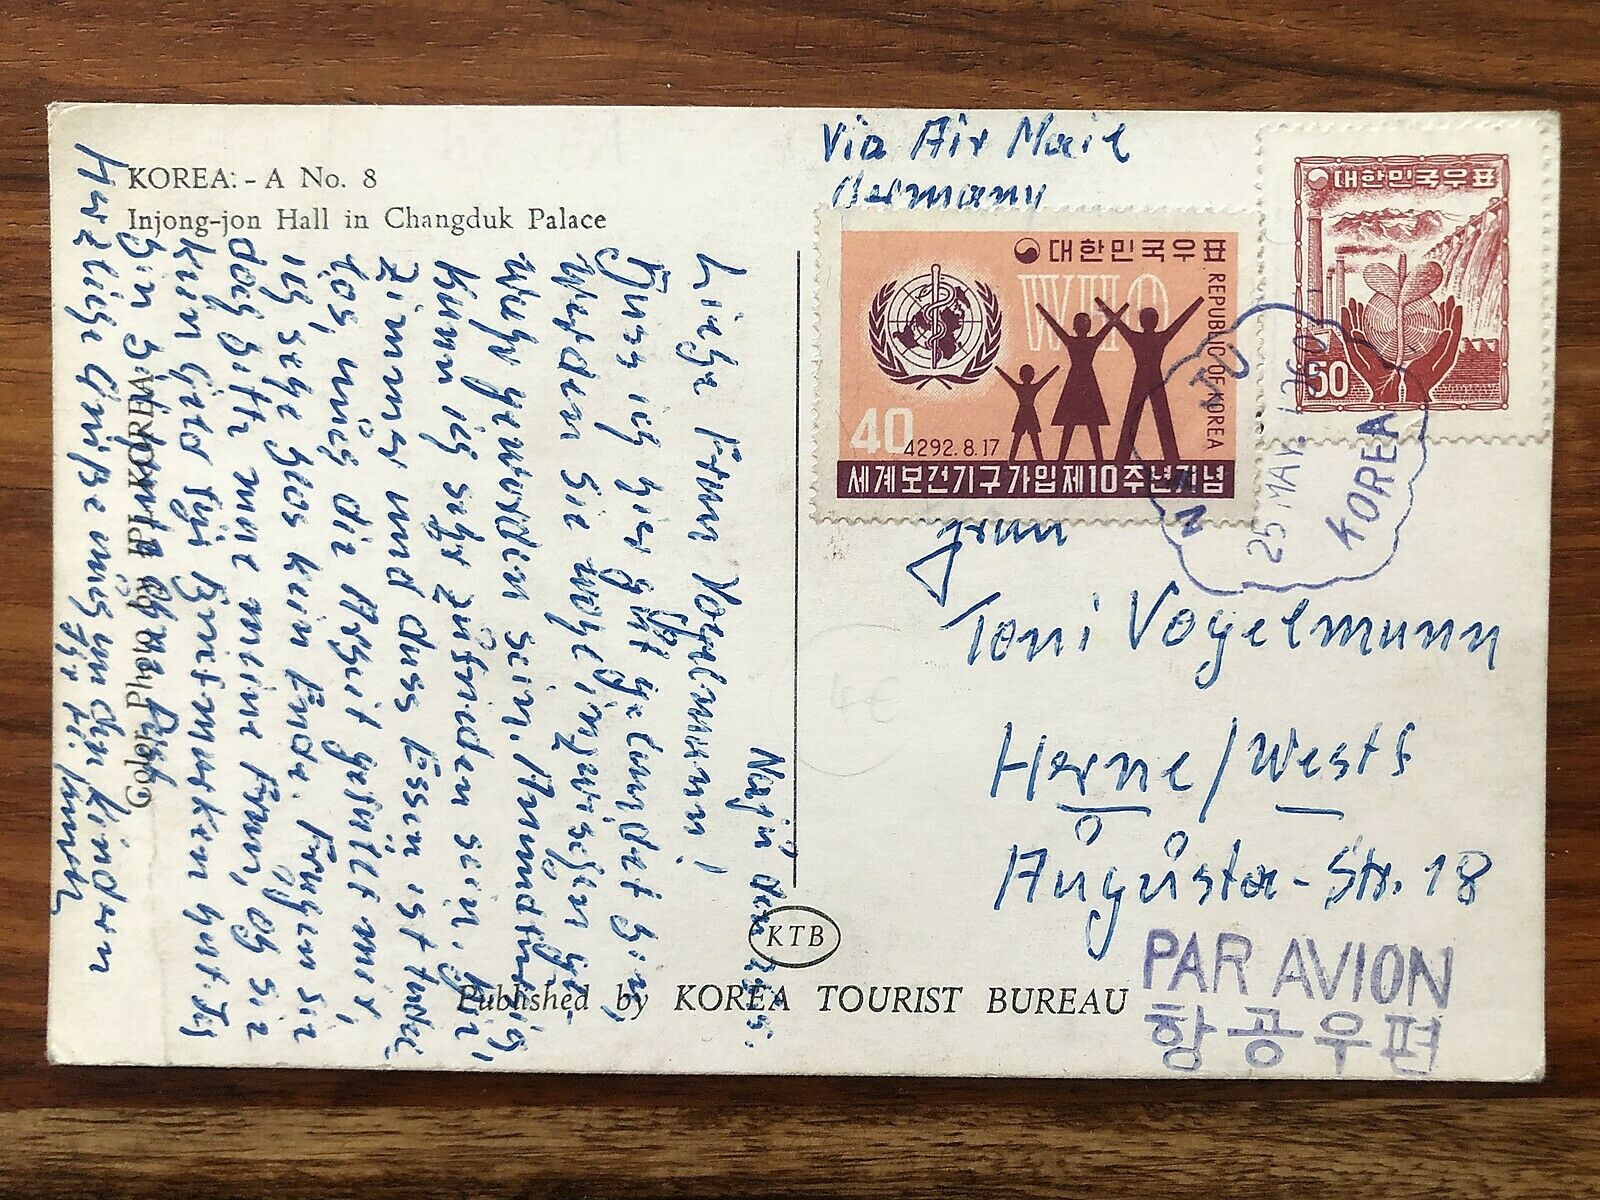 KOREA: - A No. 8
Injong-jon Hall in Changduk Palace
Naju den
Liebe Frau Vogelmann!
Dass ich hier gut gelandet bin,
werden Sie wohl inzwischen ge-
wahr geworden sein.
kann ich sehr zufrieden sein.
Zimmer und dass Essen ist tadel
los, auch die Arbeit gefällt mir,
ich sehe blos kein Ende. Fragen Sie
doch bitte mal meine Frau, ob sie
kein Geld für Briefmarken hat. Ich
bin
Herzliche Grüße auch an den Kindern
Ihr
Color Photo by IPI KOREA
KTB
Published by KOREA TOURIST BUREAU
Via Air Mail
Germany
대한민국우표
WHO
REPUBLIC OF KOREA
40
4292.8.17
세계보건기구가입제10주년기념
대한민국우표
50
25 MAY. 1960
KOREA
Frau
Toni Vogelmann
Herne/Westf
Augusta-Str. 18
PAR AVION
항공우편